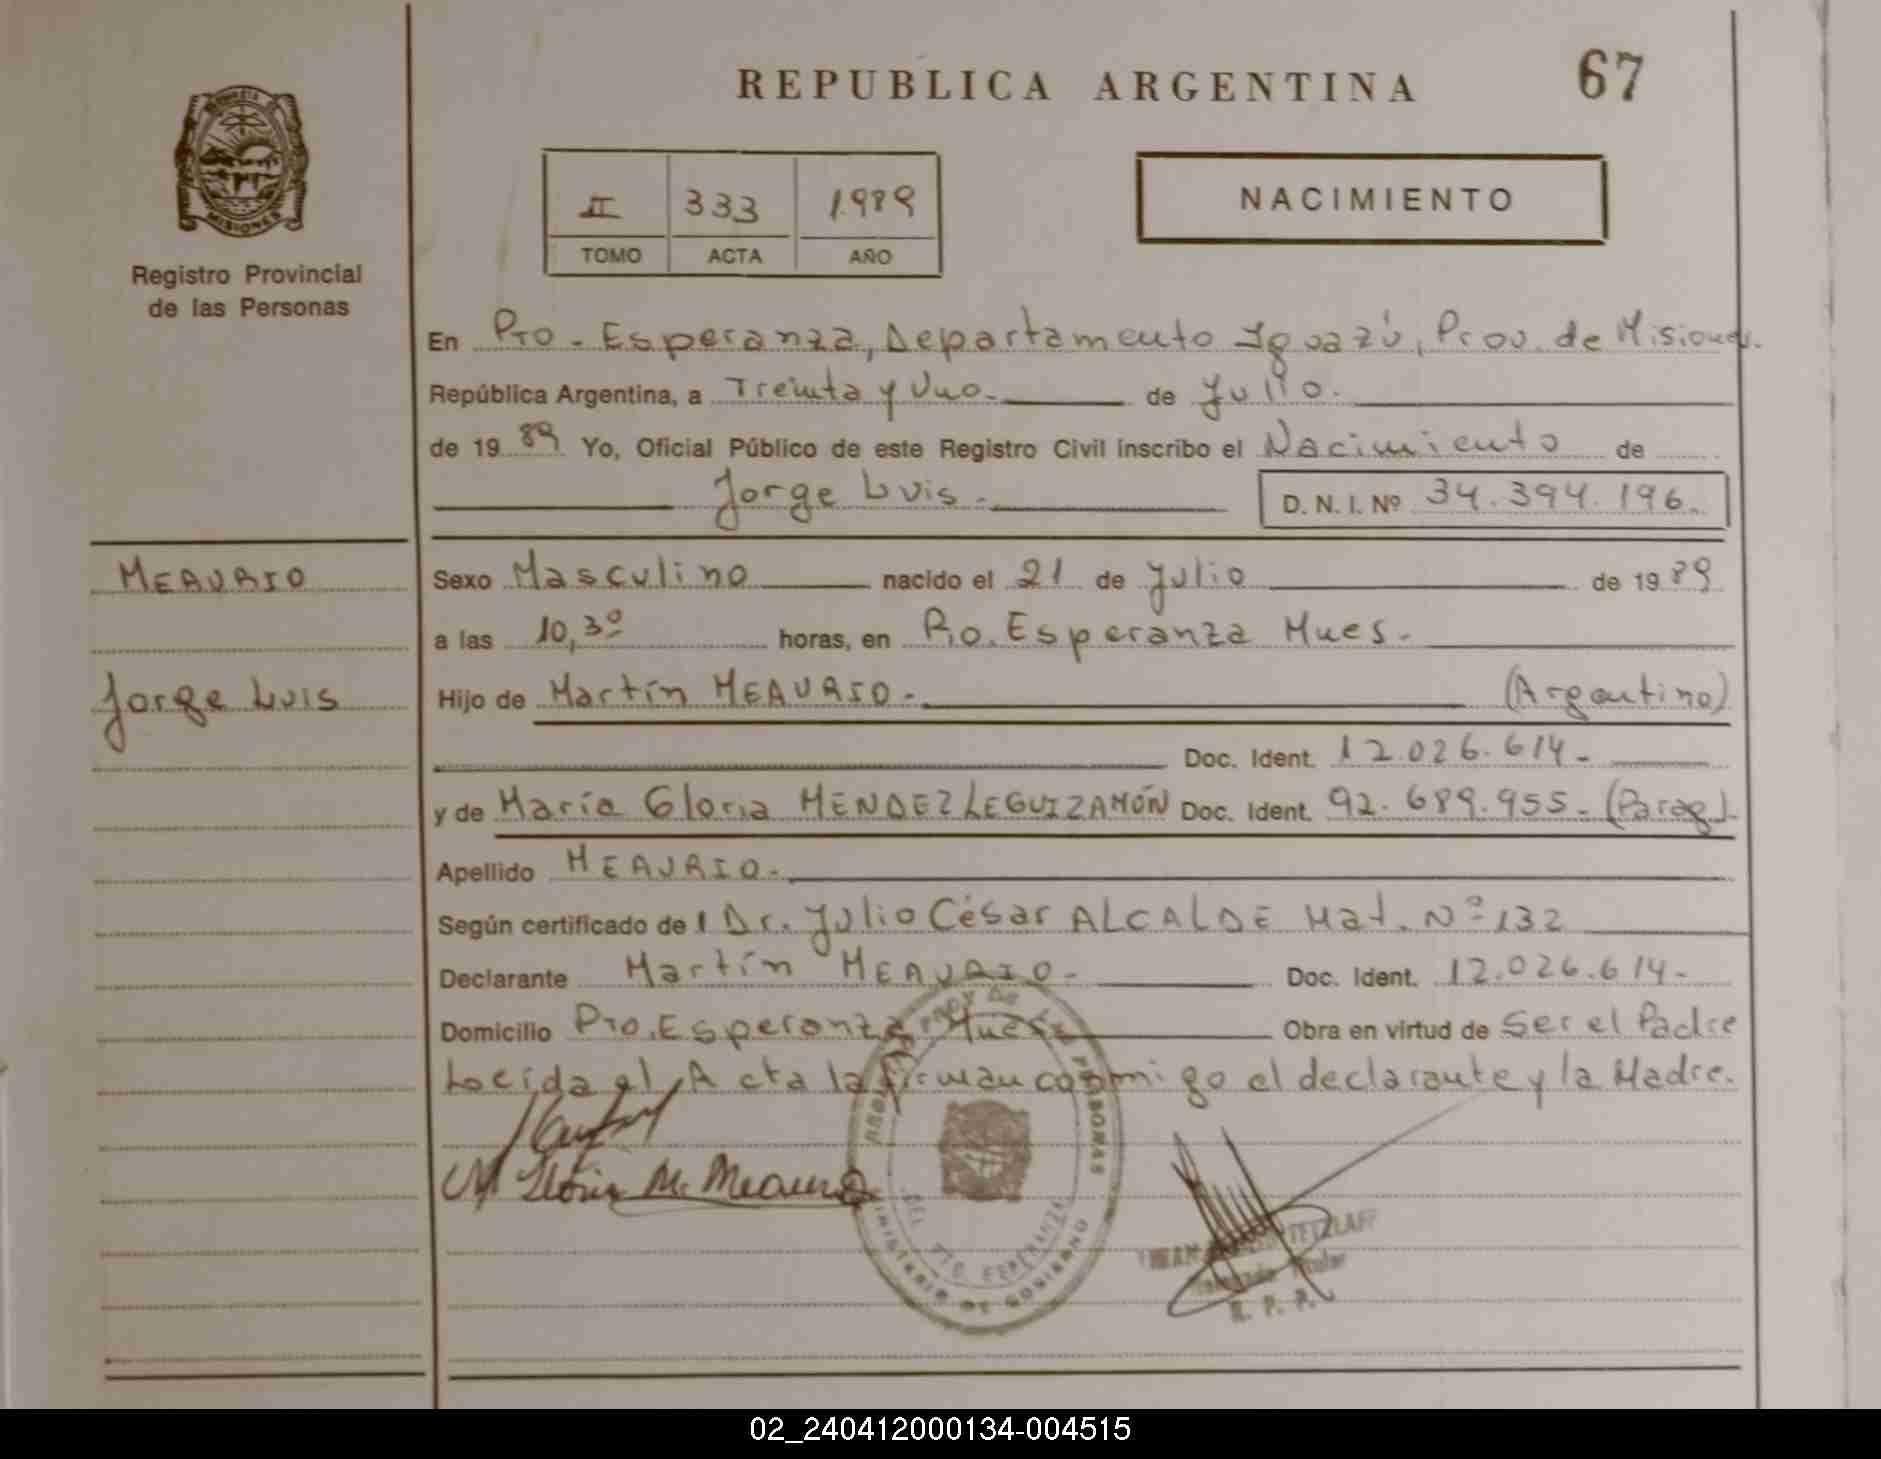 REPUBLICA ARGENTINA
67
MISIONES
Registro Provincial
de las Personas
II 333 1.989
TOMO ACTA AÑO
NACIMIENTO
En Pto - Esperanza, Departamento Iguazú, Prov. de Misiones.
República Argentina, a Treinta y Uno. de Julio.
de 19 89 Yo, Oficial Público de este Registro Civil inscribo el Nacimiento de
Jorge Luis. D. N. I. Nº 34.394.196.
MEAURIO
Jorge Luis
Sexo Masculino nacido el 21 de Julio de 19 89
a las 10,30 horas, en Pto. Esperanza Mnes.
Hijo de Martín MEAURIO. (Argentino)
Doc. Ident. 12.026.614-
y de María Gloria MENDEZ LEGUIZAMÓN Doc. Ident. 92.689.955- (Parag).
Apellido MEAURIO.
Según certificado de l Dr. Julio César ALCALDE Mat. Nº 132
Declarante Martín MEAURIO- Doc. Ident. 12.026.614-
Domicilio Pto. Esperanza Mnes. Obra en virtud de Ser el Padre
Leeida el Acta la firman conmigo el declarante y la Madre.
M Gloria M. Meaurio
PROV DE LAS PERSONAS
DEL PTO. ESPERANZA
MINISTERIO DE GOBIERNO
TETZLAFF
Titular
R. P. P.
02_240412000134-004515